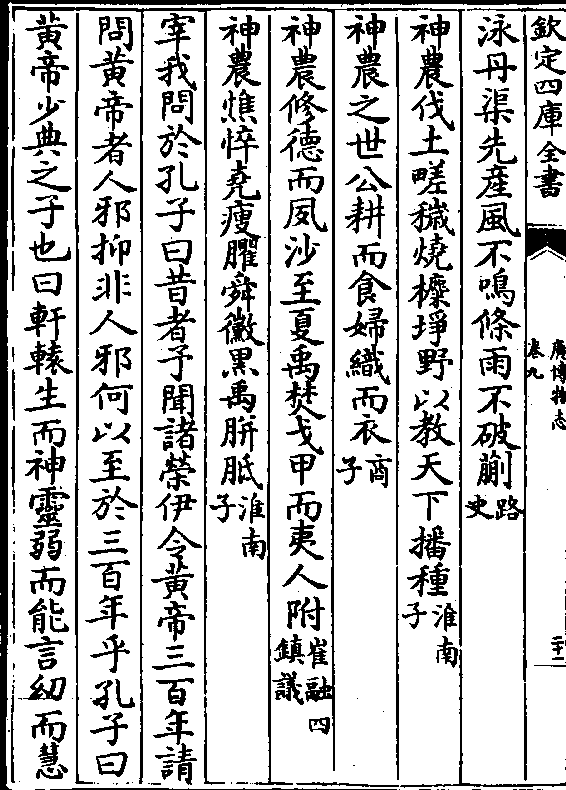 欽定四庫全書
廣博物志
卷九
二十二
泳丹渠先産風不鳴條雨不破蒯路史
神農伐土畦穢燒櫟埩野以教天下播種淮南子
神農之世公耕而食婦織而衣商子
神農修德而夙沙至夏禹焚戈甲而夷人附崔融四鎮議
神農憔悴堯瘦臞舜黴黒禹胼胝淮南子
宰我問於孔子曰昔者予聞諸榮伊令黄帝三百年請
問黄帝者人邪抑非人邪何以至於三百年乎孔子曰
黄帝少典之子也曰軒轅生而神靈弱而能言幼而慧